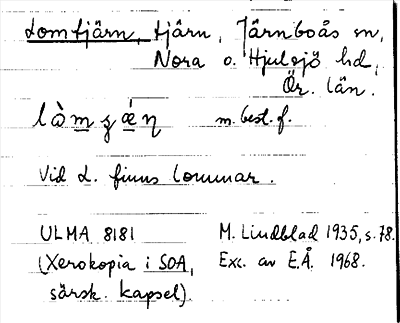 Lomtjärn, tjärn, Järnboås sn,
Nora o. Hjulsjö hd,
Ör. län.
làmʒǽη m. best. f.
Vid L. finns lommar.
ULMA 8181 M. Lindblad 1935, s. 78.
(Xerokopia i SOA, Exc. av E.Å. 1968.
särsk. kapsel).